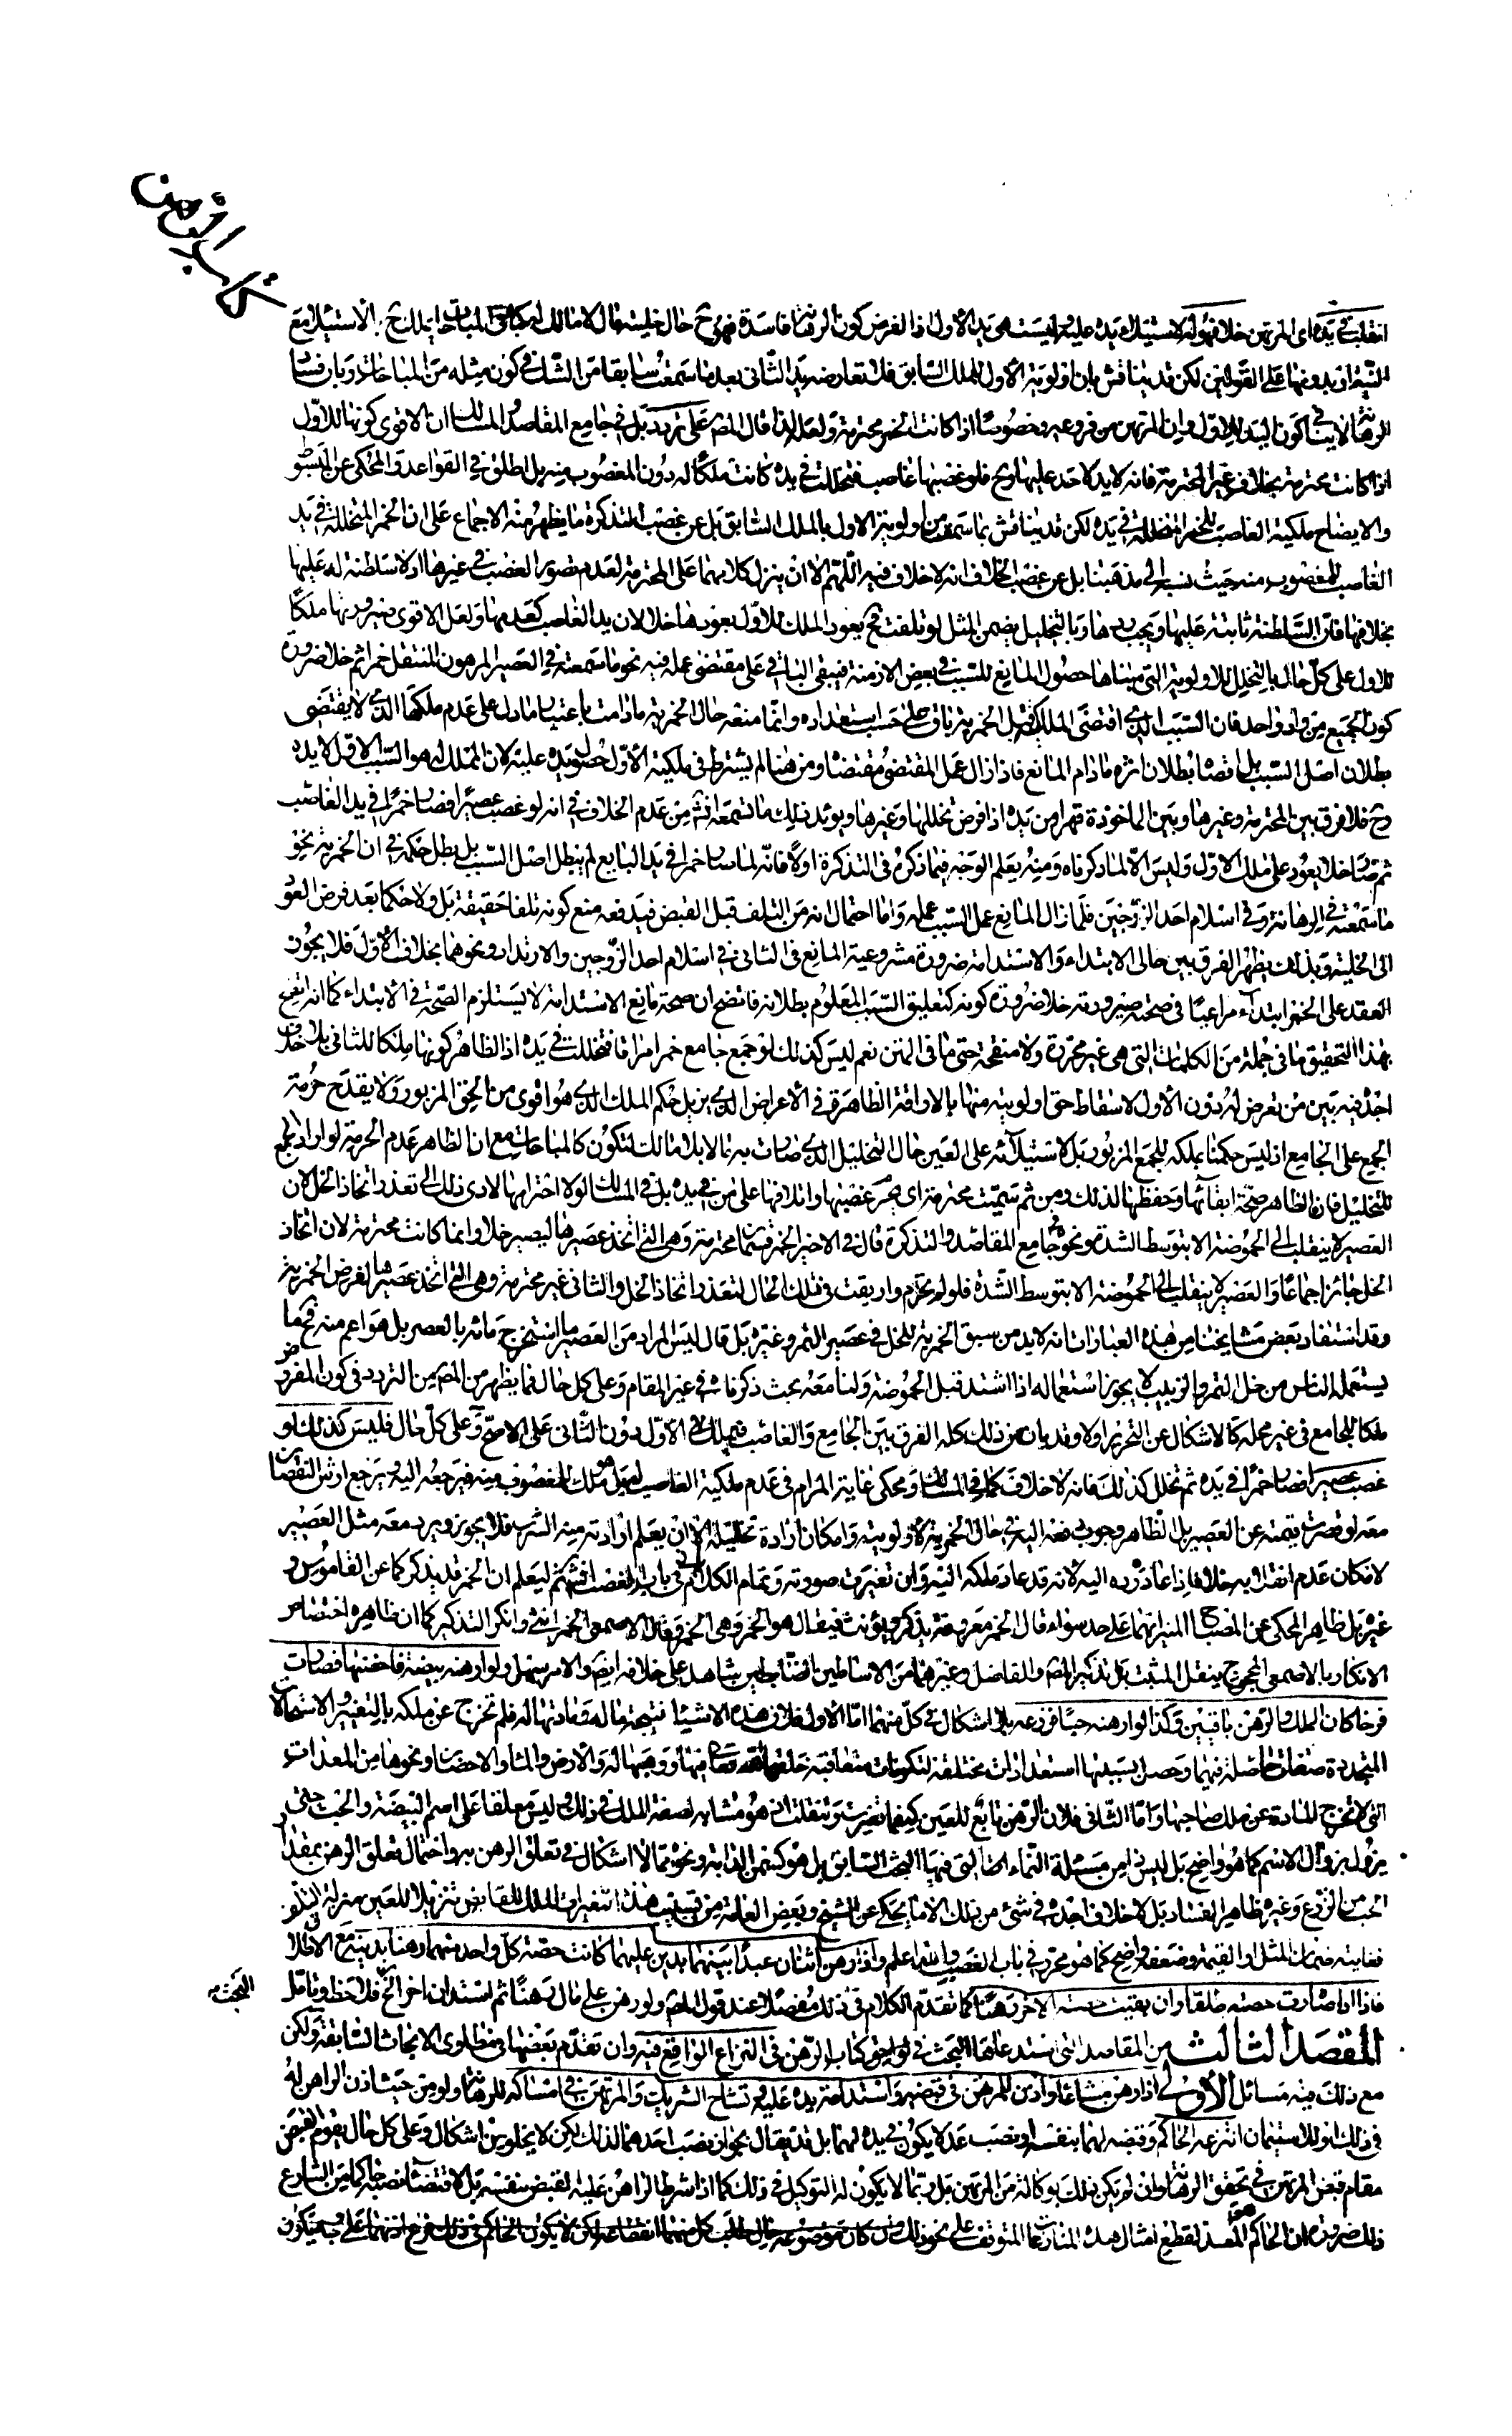 كتاب الرهن
انقلبت في يده اى المرتهن خلا فهو له لاستيلاء يده عليه وليست هى يد الأول اذ الفرض كون الرهانة فاسدة فهو ح حال خليته مال لا مالك له كباقى المباحات يملك ح بالاستيلاء مع
النية او بدونها على القولين لكن قد يناقش بان اولوية الأول بالملك السابق فلا تعارضه يد الثانى بعد ما سمعت سابقا من الشك في كون مثله من المباحات وبان فساد
الرهانة لا ينافي كون اليد للاول وان المرتهن من فروعه وخصوصا اذا كانت الخمر محترمة ولعله لذا قال المص على تردد بل في جامع المقاصد والمسالك ان الاقوى كونها للاول
اذا كانت محترمة بخلاف غير المحترمة فانه لا يد لاحد عليها وح فلو غصبها غاصب فتخللت في يده كانت ملكا له دون المغصوب منه بل اطلق في القواعد والمحكى عن المبسوط
والايضاح ملكية الغاصب للخمر المتخللة في يده لكن قد يناقش بما سمعت من اولوية الاول بالملك السابق بل عن غصب التذكرة ما يظهر منه الاجماع على ان الخمر المتخللة في يد
الغاصب للمغصوب منه حيث نسبه الى مذهبنا بل عن غصب الخلاف انه لا خلاف فيه اللهم الا ان ينزل كلامهما على المحترمة لعدم تصور الغصب في غيرها اذ لا سلطنة له عليها
بخلافها فان السلطنة ثابتة عليها ويجب ردها وبالتخليل يضمن المثل لو تلفت فح يعود الملك للاول بعودها خلا لان يد الغاصب كعدمها ولعل الاقوى صيرورتها ملكا
للاول على كل حال بالتخلل للاولوية التى مبناها حصول المانع للسبب في بعض الازمنة فيبقى الباقي على مقتضى عمله فيه نحو ما سمعته في العصير المرهون المنتقل خمرا ثم خلا ضرورة
كون الجميع من واد واحد فان السبب الذي اقتضى الملك قبل الخمرية باق على حسب استعداده وانما منعه حال الخمرية ما دامت باعتبار ما دل على عدم ملكها الذي لا يقتضى
بطلان اصل السبب بل اقصاه بطلان اثره ما دام المانع فاذا زال عمل المقتضى مقتضاه ومن هنا لم يشترط في ملكية الأول حصول يده عليه لان المملك له هو السبب الاول لا يده
وح فلا فرق بين المحترمة وغيرها وبين الماخوذة قهرا من يده اذا فرض تخللها وغيرها ويؤيد ذلك ما تسمعه انش من عدم الخلاف في انه لو غصب عصيرا فصار خمرا في يد الغاصب
ثم صار خلا يعود على ملك الاول وليس الا لما ذكرناه ومنه يعلم الوجه فيما ذكره في التذكرة اولا فانه لما صار خمرا في يد البايع لم يبطل اصل السبب بل بطل حكمه في ان الخمرية نحو
ما سمعته في الرهانة وفى اسلام احد الزوجين فلما زال المانع عمل السبب عمله واما احتمال انه من التلف قبل القبض فيدفعه منع كونه تلفا حقيقة بل ولا حكما بعد فرض العود
الى الخلية وبذلك يظهر الفرق بين حالى الابتداء والاستدامة ضرورة مشروعية المانع في الثانى في اسلام احد الزوجين والارتداد ونحوهما بخلاف الأول فلا يجوز
العقد على الخمر ابتداء مراعيا في صحته صيرورته خلا ضرورة كونه كتعليق السبب المعلوم بطلانه فاتضح ان صحة مانع الاستدامة لا يستلزم الصحة في الابتداء كما انه اتضح
بهذا التحقيق ما في جملة من الكلمات التى هى غير محررة ولا منقحة حتى ما في المتن نعم ليس كذلك لو جمع جامع خمرا مراقا فتخللت في يده اذ الظاهر كونها ملكا للثانى بلا خلاف
اجده فيه بين من تعرض له دون الأول لاسقاط حق اولويته منها بالاراقة الظاهرة في الأعراض الذي يزيل حكم الملك الذي هو اقوى من الحق المزبور ولا يقدح حرمة
الجمع على الجامع اذ ليس حكمنا بملكه للجمع المزبور بل لاستيلائه على العين حال التخليل الذي صارت به مالا بلا مالك لتكون كالمباحات مع ان الظاهر عدم الحرمة لو اراد الجمع
للتخليل فان الظاهر صحة ابقائها وحفظها لذلك ومن ثم سميت محترمة اى يحرم غصبها واتلافها على من في يده بل في المسالك لولا احترامها لادى ذلك الى تعذر اتخاذ الخل لان
العصير لا ينقلب الى الحموضة الا بتوسط الشدة ونحوه في جامع المقاصد والتذكرة قال في الاخير الخمر قسمان محترمة وهى التى اتخذ عصيرها ليصير خلا وانما كانت محترمة لان اتخاذ
الخل جائز اجماعا والعصير لا ينقلب الى الحموضة الا بتوسط الشدة فلو لم يحترم واريقت في تلك الحال لتعذر اتخاذ الخل والثانى غير محترمة وهى التى اتخذ عصيرها لغرض الخمرية
وقد استفاد بعض مشايخنا من هذه العبارات انه لا بد من سبق الخمرية للخل في عصير التمر وغيره بل قال ليس المراد من العصير ما استخرج مائه بالعصر بل هو اعم منه فح ما
يستعمله الناس من خل التمر والزبيب لا يجوز استعماله اذا اشتد قبل الحموضة ولنا معه بحث ذكرناه في غير المقام وعلى كل حال فما يظهر من المص من التردد في كون المفروض
ملكا للجامع في غير محله كالاشكال عن التحرير اولا وقد بان من ذلك كله الفرق بين الجامع والغاصب فيملك في الاول دون الثانى على الاصح وعلى كل حال فليس كذلك لو
غصب عصيرا فصار خمرا في يده ثم تخلل كذلك فانه لا خلاف كما في المسالك ومحكى غاية المرام في عدم ملكية الغاصب له بل هو ملك للمغصوب منه فيرجعه اليه ويرجع ارش النقصان
معه لو نقصت قيمته عن العصير بل الظاهر وجوب دفعه اليه في حال الخمرية لأولويته وامكان ارادة تخليله الا ان يعلم ارادته منه الشرب فلا يجوز ويرد معه مثل العصير
لامكان عدم انقلابه خلا فاذا عاد رده اليه لانه قد عاد ملكه اليه وان تغيرت صورته وتمام الكلام في باب الغصب انش ثم ليعلم ان الخمر قد يذكر كما عن القاموس و
غيره بل ظاهر المحكى عن المصباح المنير انهما على حد سواء قال الخمر معروفة يذكر ويؤنث فيقال هو الخمر وهى الخمر وقال الاصمعى الخمر انثى وانكر التذكير كما ان ظاهره اختصاص
الانكار بالاصمعى المحجوج بنقل المثبت بل تذكير المص والفاضل وغيرهما من الاساطين الضابطين شاهد على خلافه ايضا والامر سهل ولو رهنه بيضة فاحضنها فصارت
فرخا كان الملك والرهن باقيين وكذا لو رهنه حبا فزرعه بلا اشكال في كل منهما اما الأول فلان هذه الاشياء نتيجة ماله ومادتها له فلم تخرج عن ملكه بالتغيير والاستحالات
المتجددة صفات حاصلة فيها وحصل بسببها استعدادات مختلفة لتكونات متعاقبة خلقها الله تعالى فيها ووهبها له والارض والماء والاحضان ونحوها من المعدات
التى لا تخرج المادة عن ملك صاحبها واما الثانى فلان الرهن تابع للعين كيفما تغيرت وتنقلت اذ هو مشابه لصفة الملك في ذلك وليس معلقا على اسم البيضة والحب حتى
يزول بزوال الاسم كما هو واضح بل ليس ذا من مسئلة النماء الـ التى فيها البحث السابق بل هو كسمن الدابة ونحوه مما لا اشكال في تعلق الرهن به واحتمال تعلق الرهن بمقدار
الحب من الزرع وغيره ظاهر الفساد بل لا خلاف اجده في شئ من ذلك الا ما يحكى عن الشيخ وبعض العامة من تسبيب هذا التغير الملك للقابض تنزيلا للعين منزلة التلف
فعليه ضمان المثل او القيمة وضعفه واضح كما هو محرر في باب الغصب والله اعلم واذا رهن اثنان عبدا بينهما بدين عليهما كانت حصة كل واحد منهما رهنا بدينه مع الاطلاق
فاذا اداه صارت حصته طلقا وان بقيت حصة الاخر رهنا كما تقدم الكلام في ذلك مفصلا عند قول المص ولو رهن على مال رهنا ثم استدان اخر الخ فلاحظ وتامل البحث
المقصد الثالث من المقاصد التى استدعاها البحث في لواحق كتاب الرهن في النزاع الواقع فيه وان تقدم بعضها في مطاوى الابحاث السابقة ولكن
مع ذلك فيه مسائل الأولى اذا رهن مشاعا واذن للمرتهن في قبضه واستدامة يده عليه وتشاح الشريك والمرتهن في امساكه للرهانة ولو من حيث اذن الراهن له
في ذلك او للاستيمان انتزعه الحاكم وقبضه لهما بنفسه او نصب عدلا يكون في يده لهما بل قد يقال بجواز نصب احدهما لذلك لكن لا يخلو من اشكال وعلى كل حال يقوم القبض
مقام قبض المرتهن في تحقق الرهانة وان لم يكن ذلك بوكالة من المرتهن بل ربما لا يكون له التوكيل في ذلك كما اذا شرط الراهن عليه القبض بنفسه بل لاقتضاء نصبه حاكما من الشارع
ذلك ضرورة ان الحاكم هو المعد لقطع امثال هذه المنازعات المتوقف على نحو ذلك